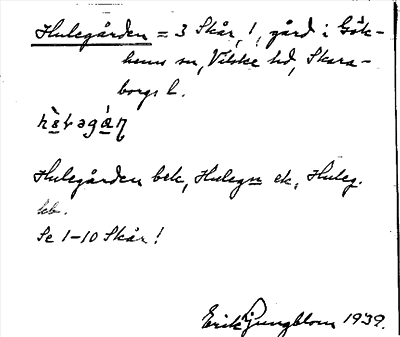 Hulegården = 3 Skår, 1, gård i Gök-
hems sn, Vilske hd, Skara-
borgs l.
Hulegården bek, Hulegn ek, Huleg.
kb.
Se 1-10 Skår!
Erik Ljungblom 1939.